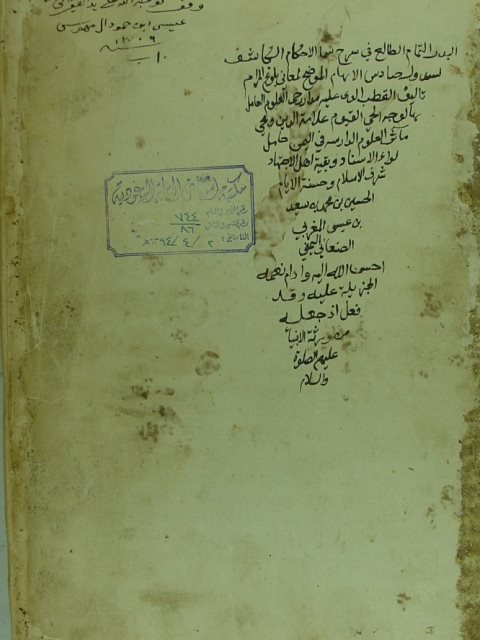 وقف لوجه الله على يد الفقير الى
عيسى ابن حمود ال مهوس
١٣٠٦ سنة
البدر التمام الطالع في شرح سما الاحكام الكاشف
الابهام الموضح لمعاني بلوغ المرام
تاليف القطب الذي عليه مدار رحى العلوم العامل
بها لوجه الحي القيوم علامة الدين ومحي
ماثر العلوم الدارسة في اليمن حامل
لواء الاسناد وبقية اهل الاجتهاد
شرف الاسلام وحسنة الايام
الحسين بن محمد بن سعيد
بن عيسى المغربي
الصنعاني اليمني
احسن الله اليه وادام نعمه
الجزيلة عليه وقد
فعل اذ جعله
من ورثة الانبياء
عليهم الصلوة
والسلام
مكتبة الرياض السعودية
٧٤٤
٨٦
التاريخ: ٢ / ٤ / ١٣٩٤هـ